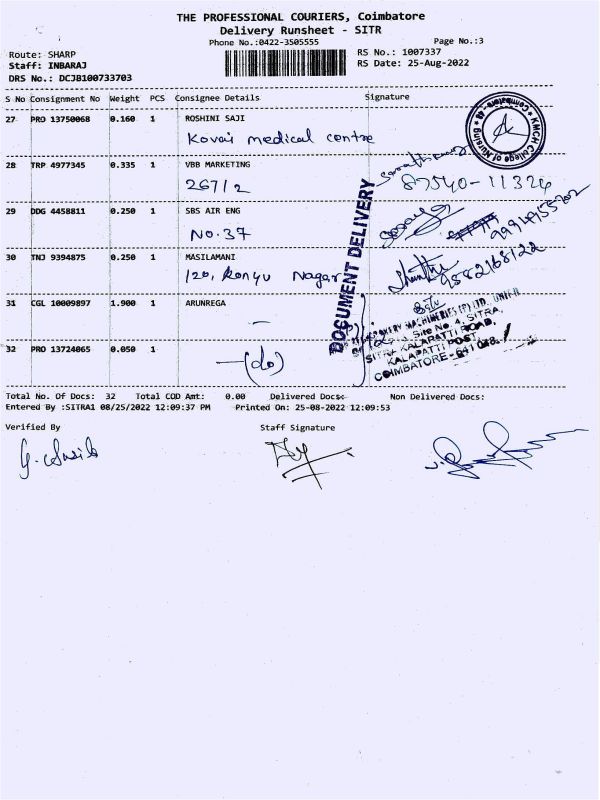 THE PROFESSIONAL COURIERS, Coimbatore
Delivery Runsheet - SITR
Phone No.:0422-3505555
Page No.:3
Route: SHARP
RS No.: 1007337
Staff: INBARAJ
RS Date: 25-Aug-2022
DRS No.: DCJB100733703
S No Consignment No Weight PCS Consignee Details Signature
27 PRO 13750068 0.160 1 ROSHINI SAJI
Kovai medical centre
KMCH College of Nursing
Coimbatore
28 TRP 4977345 0.335 1 VBB MARKETING
267/2
87540-11324
29 DDG 4458811 0.250 1 SBS AIR ENG
No. 37
DOCUMENT DELIVERY
30 TNJ 9394875 0.250 1 MASILAMANI
Nagar
95882168122
31 CGL 10009897 1.900 1 ARUNREGA
-
UNIT-II
Site No 4, SITRA,
SITRA KALAPATTI ROAD,
KALAPATTI POST
COIMBATORE - 641 048.
32 PRO 13724065 0.050 1
(do)
Total No. Of Docs: 32 Total COD Amt: 0.00 Delivered Docs: Non Delivered Docs:
Entered By :SITRA1 08/25/2022 12:09:37 PM Printed On: 25-08-2022 12:09:53
Verified By
Staff Signature